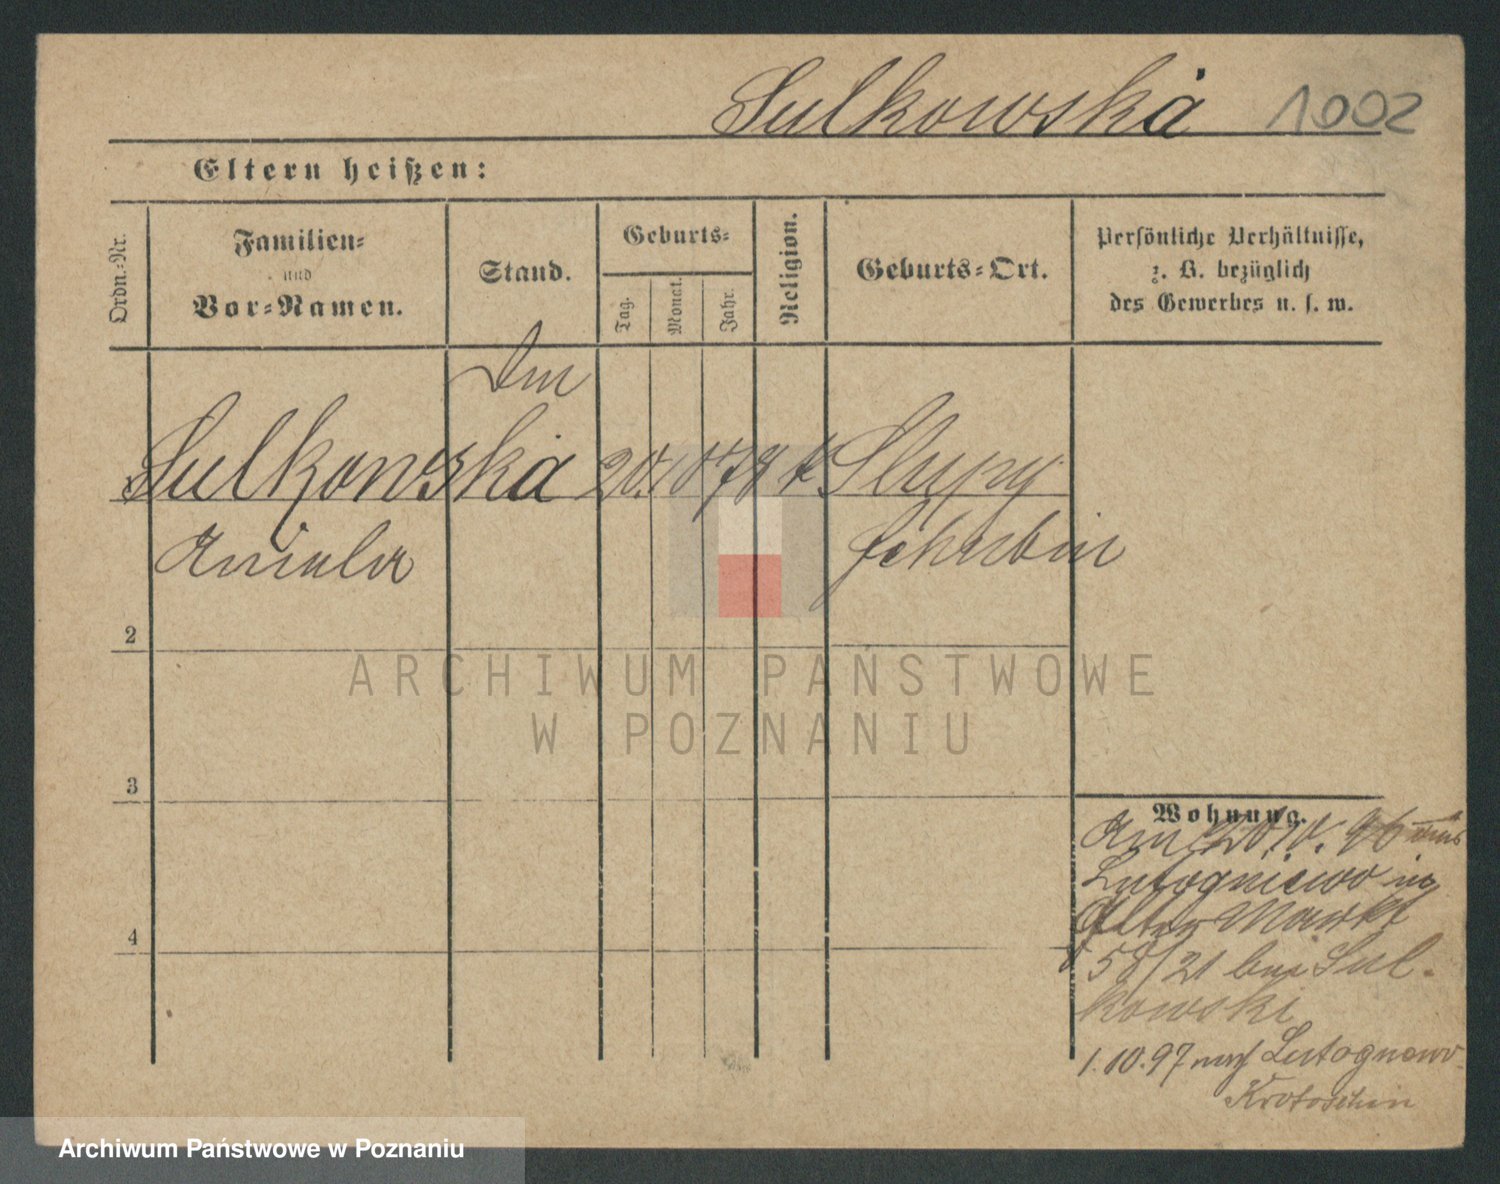 Sulkowska 1002
Eltern heißen:
Ordn.-Nr.
Familien-
und
Vor-Namen.
Stand.
Geburts-
Tag.
Monat.
Jahr.
Religion.
Geburts-Ort.
Persönliche Verhältnisse,
z. B. bezüglich
des Gewerbes u. s. w.
Sulkowska 20. 10 79 k Slupy
Aniela Schubin
2
3
4
Wohnung.
Am 20.10. 96 aus
Lutogniewo in
Alter Markt
58/21 bei Sul-
kowski
1.10.97 nach Lutogniewo
Krotoschin
ARCHIWUM PAŃSTWOWE
W POZNANIU
Archiwum Państwowe w Poznaniu